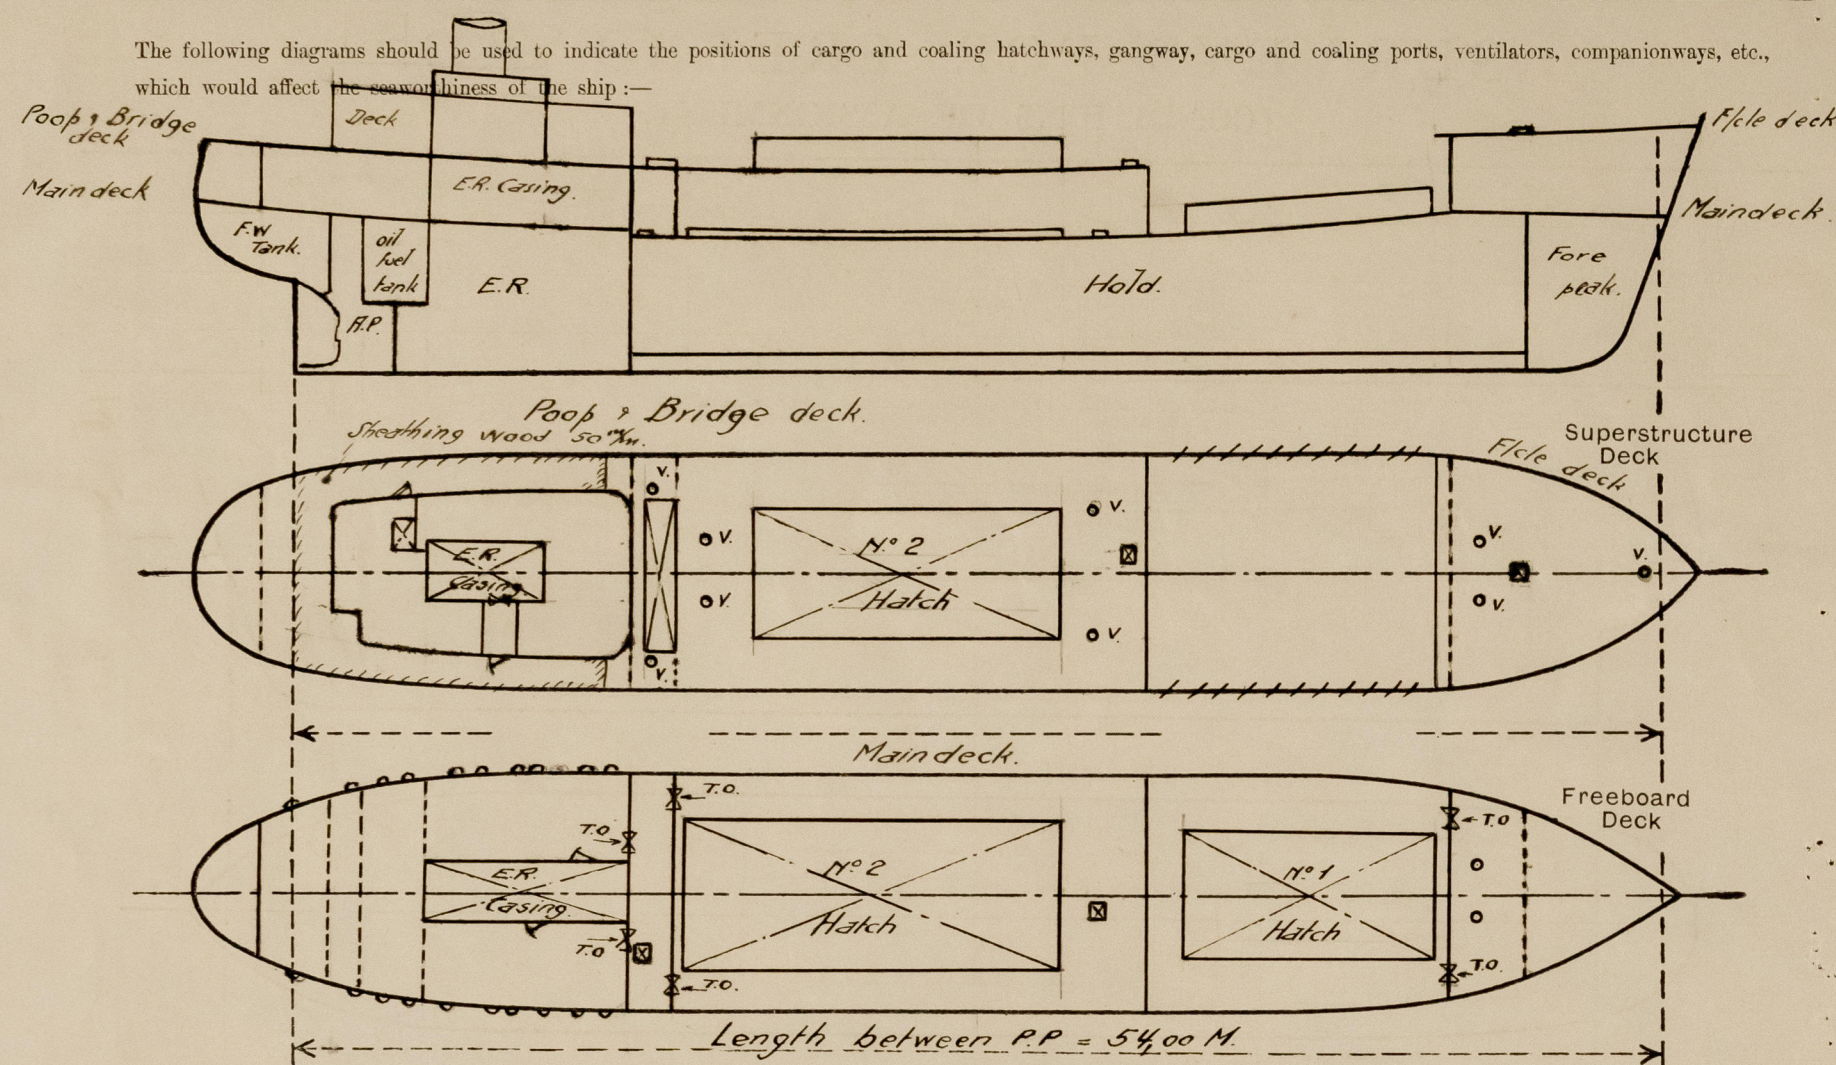 The following diagrams should be used to indicate the positions of cargo and coaling hatchways, gangway, cargo and coaling ports, ventilators, companionways, etc.,
which would affect the seaworthiness of the ship :—
Poop & Bridge
deck
Deck
F/cle deck
Main deck
E.R. Casing.
Maindeck.
F.W
Tank.
oil
fuel
tank
E.R.
Hold.
Fore
peak.
A.P.
Poop & Bridge deck.
Sheathing wood 50 m/m.
Superstructure
Deck
F/cle deck
V.
V.
V.
V.
V.
V.
V.
V.
V.
E.R.
Casing
No 2
Hatch
Maindeck.
Freeboard
Deck
T.O.
T.O
T.O
E.R.
Casing.
No 2
Hatch
No 1
Hatch
T.O
T.O.
T.O.
Length between P.P = 54,00 M.